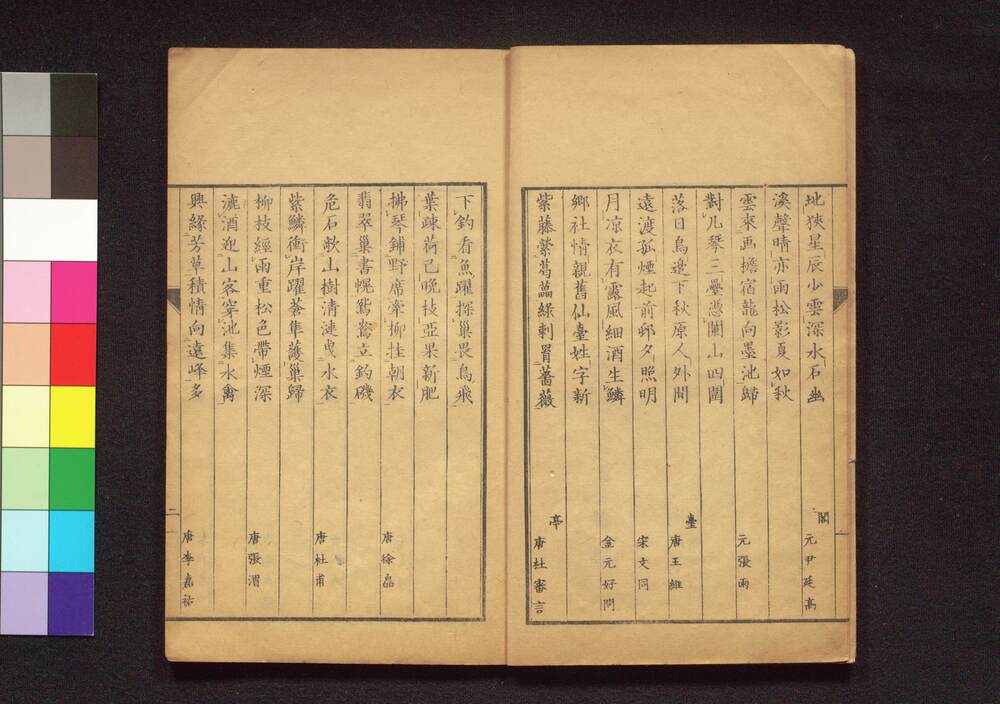 地狭星辰少雲深水石幽　閣　元尹廷高
溪聲晴亦雨松影夏如秋
雲来画檐宿龍向墨池歸　元張雨
對几琴三疊憑闌山四圍
落日鳥邊下秋原人外閒　臺　唐王維
遠渡孤煙起前邨夕照明　宋文同
月凉衣有露風細酒生鱗　金元好問
鄉社情親舊仙臺姓字新
紫藤縈葛藟綠刺罥薔薇　亭　唐杜審言
下釣看魚躍探巢畏鳥飛
葉疎荷已晚枝亞果新肥
拂琴鋪野席牽柳挂朝衣　唐徐晶
翡翠巢書幌鴛鴦立釣磯
危石欹山樹清漣曳水衣　唐杜甫
紫鱗衝岸躍蒼隼護巢歸
柳枝經雨重松色帶煙深　唐張渭
漉酒迎山客穿池集水禽
興緣芳草積情向遠峰多　唐李嘉祐
二